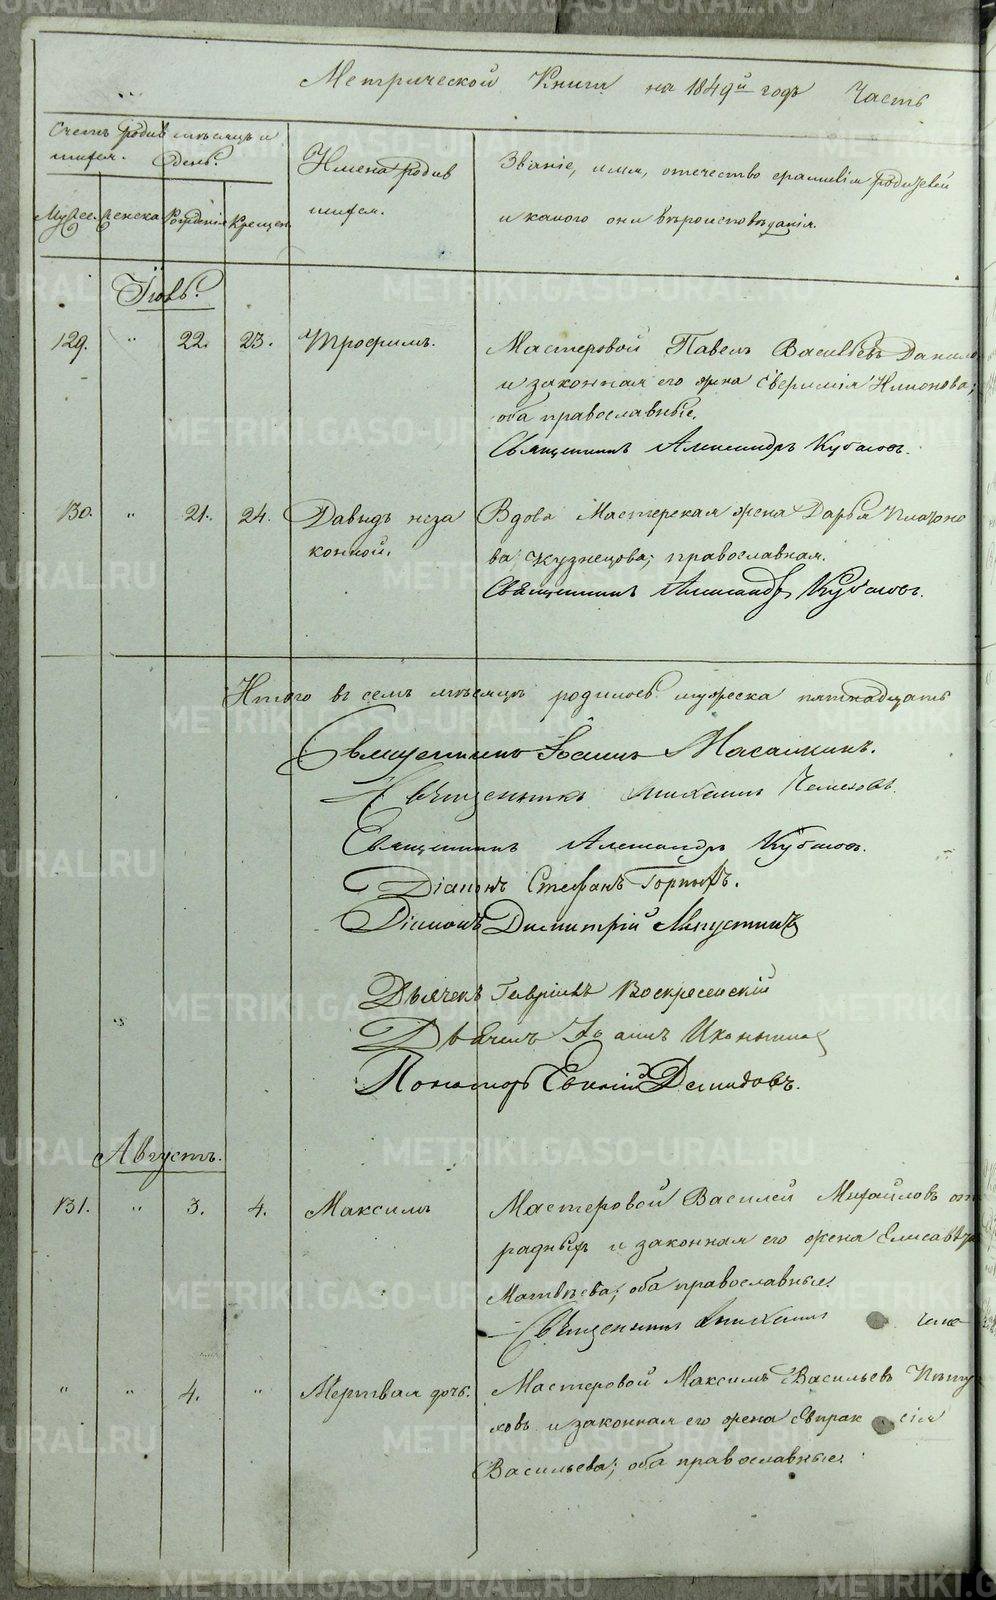 Метрической Книги на 1849й годъ Часть
Счетъ родив мѣсяцъ и
шихся. день.
Имена родив
шихся.
Званіе, имя, отечество
родителей
и какого они вѣроисповѣданія.
Мужес. Женска Рожденія Крещен.
Іюль.
129. " 22. 23. Трофимъ. Мастеровой Павелъ Васильевъ Данило
и законная его жена
оба православные.
Священникъ Александръ Кубасовъ.
130. " 21. 24. Давыдъ неза Вдова Мастерская жена Дарья Плато­но
конной. ва Кузнецова; православная.
Священникъ Александръ Кубасовъ.
Итого въ семъ мѣсяцѣ родилось мужеска пятнадцать
Священникъ Іоаннъ
Священникъ Михаилъ
Священникъ Александръ Кубасовъ.
Діаконъ Стефанъ Горныхъ.
Діаконъ Димитрій Августинъ
Дьячекъ Гавріилъ Воскресенскій
Дьячекъ Іоаннъ
Пономарь Евгеній Демидовъ.
Августъ.
131. " 3. 4. Максимъ Мастеровой Василей Михайловъ от
радныхъ и законная его жена Елисавѣта
Матвѣева; оба православные.
Священникъ Михаилъ
" " 4. " Мертвая дочь. Мастеровой Максимъ Васильевъ Пѣту
ховъ и законная его жена Евпраксія
Васильева; оба православные.
METRIKI.GASO-URAL.RU